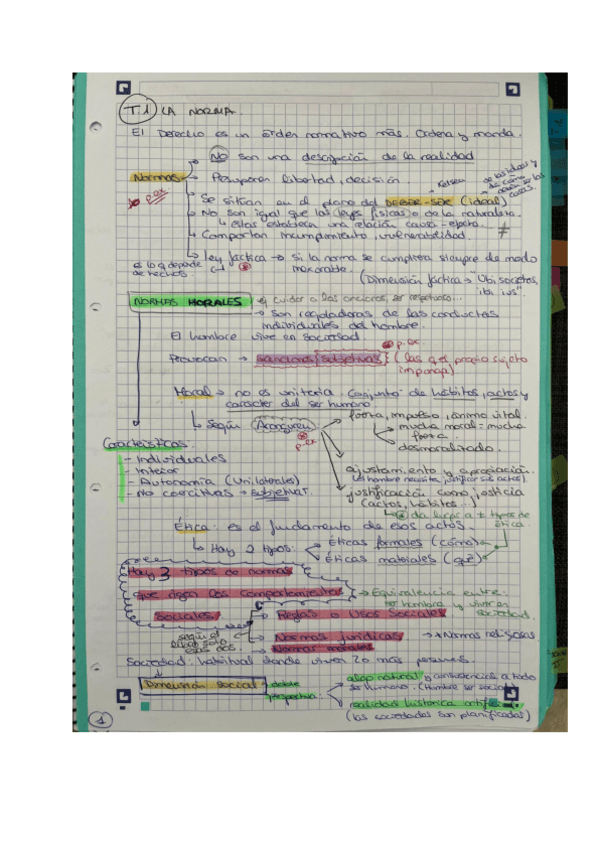 T.1 LA NORMA.
El Derecho es un orden normativo más. Ordena y manda.
NO son una descripción de la realidad
Normas → Presuponen libertad, decisión
p.ex
Se sitúan en el plano del DEBER-SER (ideal)
Kelsen
de las ideas y de cómo deben ser las cosas.
No son igual que las leyes físicas o de la naturaleza.
↳ éstas establecen una relación causa-efecto. ≠
Comportan incumplimiento, vulnerabilidad.
Ley fáctica → si la norma se cumpliera siempre de modo inexorable.
es lo q depende de hechos.
(Dimensión fáctica → "Ubi societas, ibi ius"
NORMAS MORALES
ej cuidar a los ancianos, ser respetuoso...
→ Son reguladoras de las conductas
individuales del hombre.
El hombre vive en sociedad
p.ex
Provocan → sanciones subjetivas (las q el propio sujeto
imponga)
Moral → no es unitaria. Conjunto de hábitos, actos y
carácter del ser humano
↳ Según Aranguren
p.ex
fuerza, impulso, ánimo vital.
mucha moral = mucha
fuerza.
desmoralizado.
Características.
- Individuales
- Interior
- Autonomía (Unilaterales)
- No coercitivas → subjetivas.
ajustamiento y apropiación.
(el hombre necesita justificar sus actos)
justificación como justicia
(actos, hábitos...)
↳ da lugar a 2 tipos de
ética.
Ética: es el fundamento de esos actos.
↳ Hay 2 tipos:
Éticas formales (cómo)
Éticas materiales (qué)
Hay 3 tipos de normas
que rigen los comportamientos
sociales
→ Equivalencia entre:
ser hombre y vivir en
sociedad.
Reglas o Usos Sociales
Normas jurídicas → Normas religiosas
Normas morales
según el libro solo esas dos.
Sociedad: habitual donde viven 2 o más personas.
Dimensión social
doble
perspectiva
algo natural y consustancial a todo
ser humano. (Hombre ser social)
realidad histórica artificial
(las sociedades son planificadas)
1